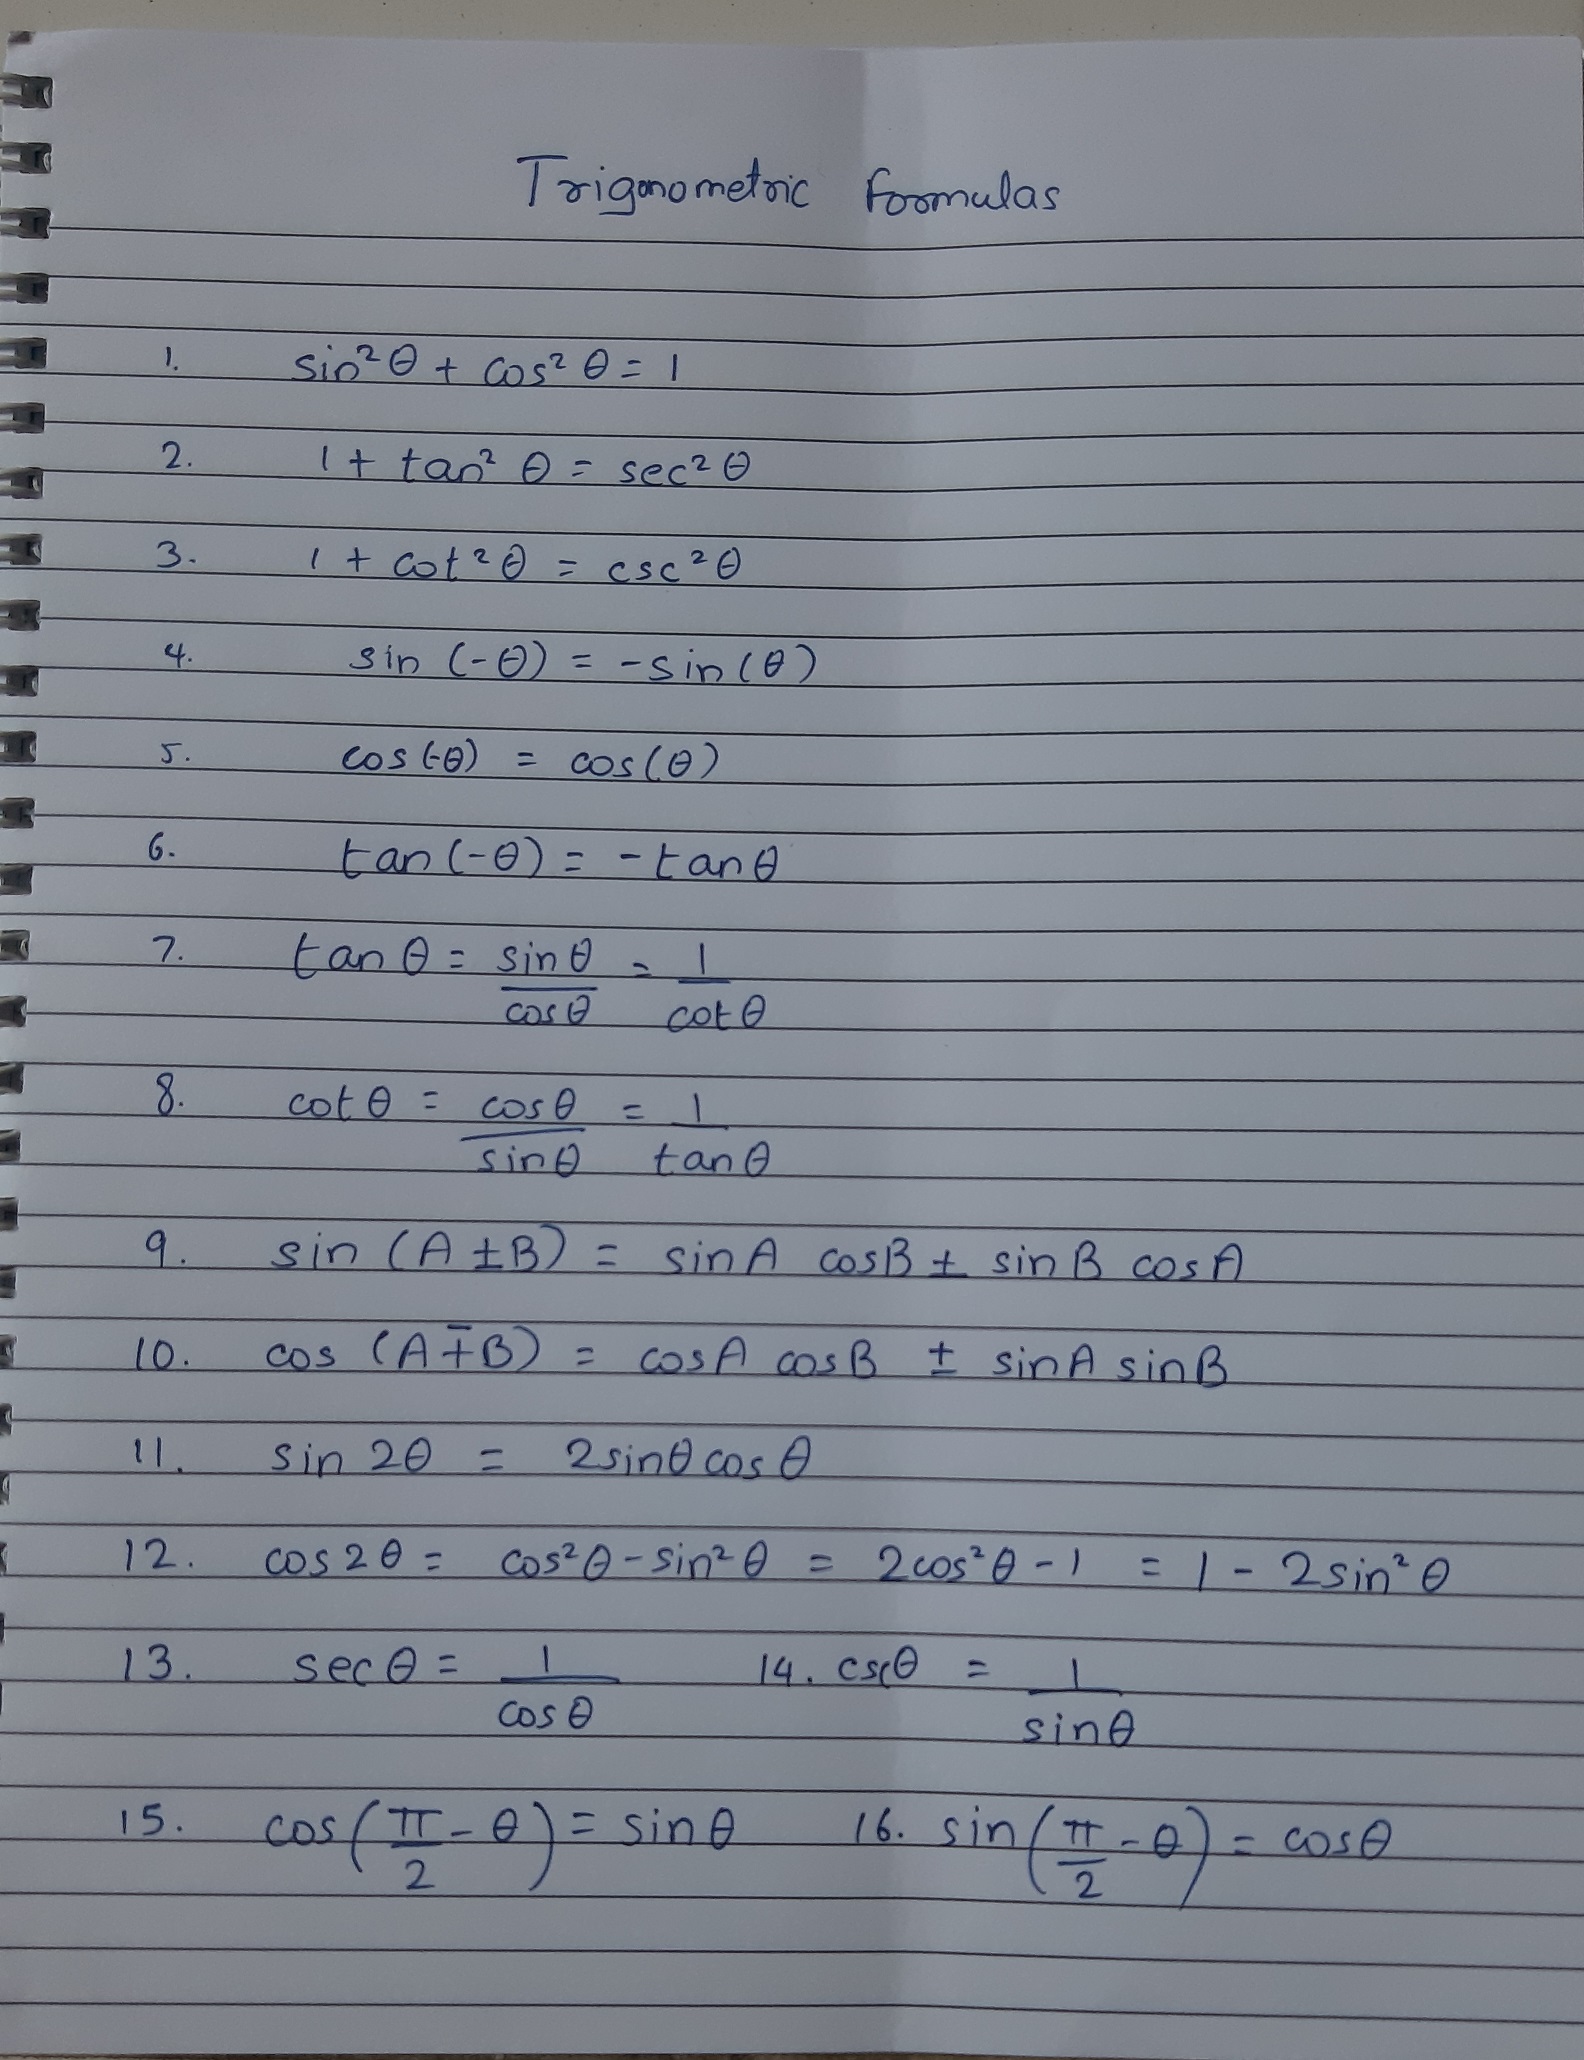 Trigonometric Formulas
1. sin²θ + cos²θ = 1
2. 1 + tan²θ = sec²θ
3. 1 + cot²θ = csc²θ
4. sin(-θ) = -sin(θ)
5. cos(-θ) = cos(θ)
6. tan(-θ) = -tanθ
7. tanθ = sinθ/cosθ = 1/cotθ
8. cotθ = cosθ/sinθ = 1/tanθ
9. sin(A±B) = sinA cosB ± sinB cosA
10. cos(A∓B) = cosA cosB ± sinA sinB
11. sin2θ = 2sinθcosθ
12. cos2θ = cos²θ-sin²θ = 2cos²θ-1 = 1-2sin²θ
13. secθ = 1/cosθ 14. cscθ = 1/sinθ
15. cos(π/2-θ) = sinθ 16. sin(π/2-θ) = cosθ